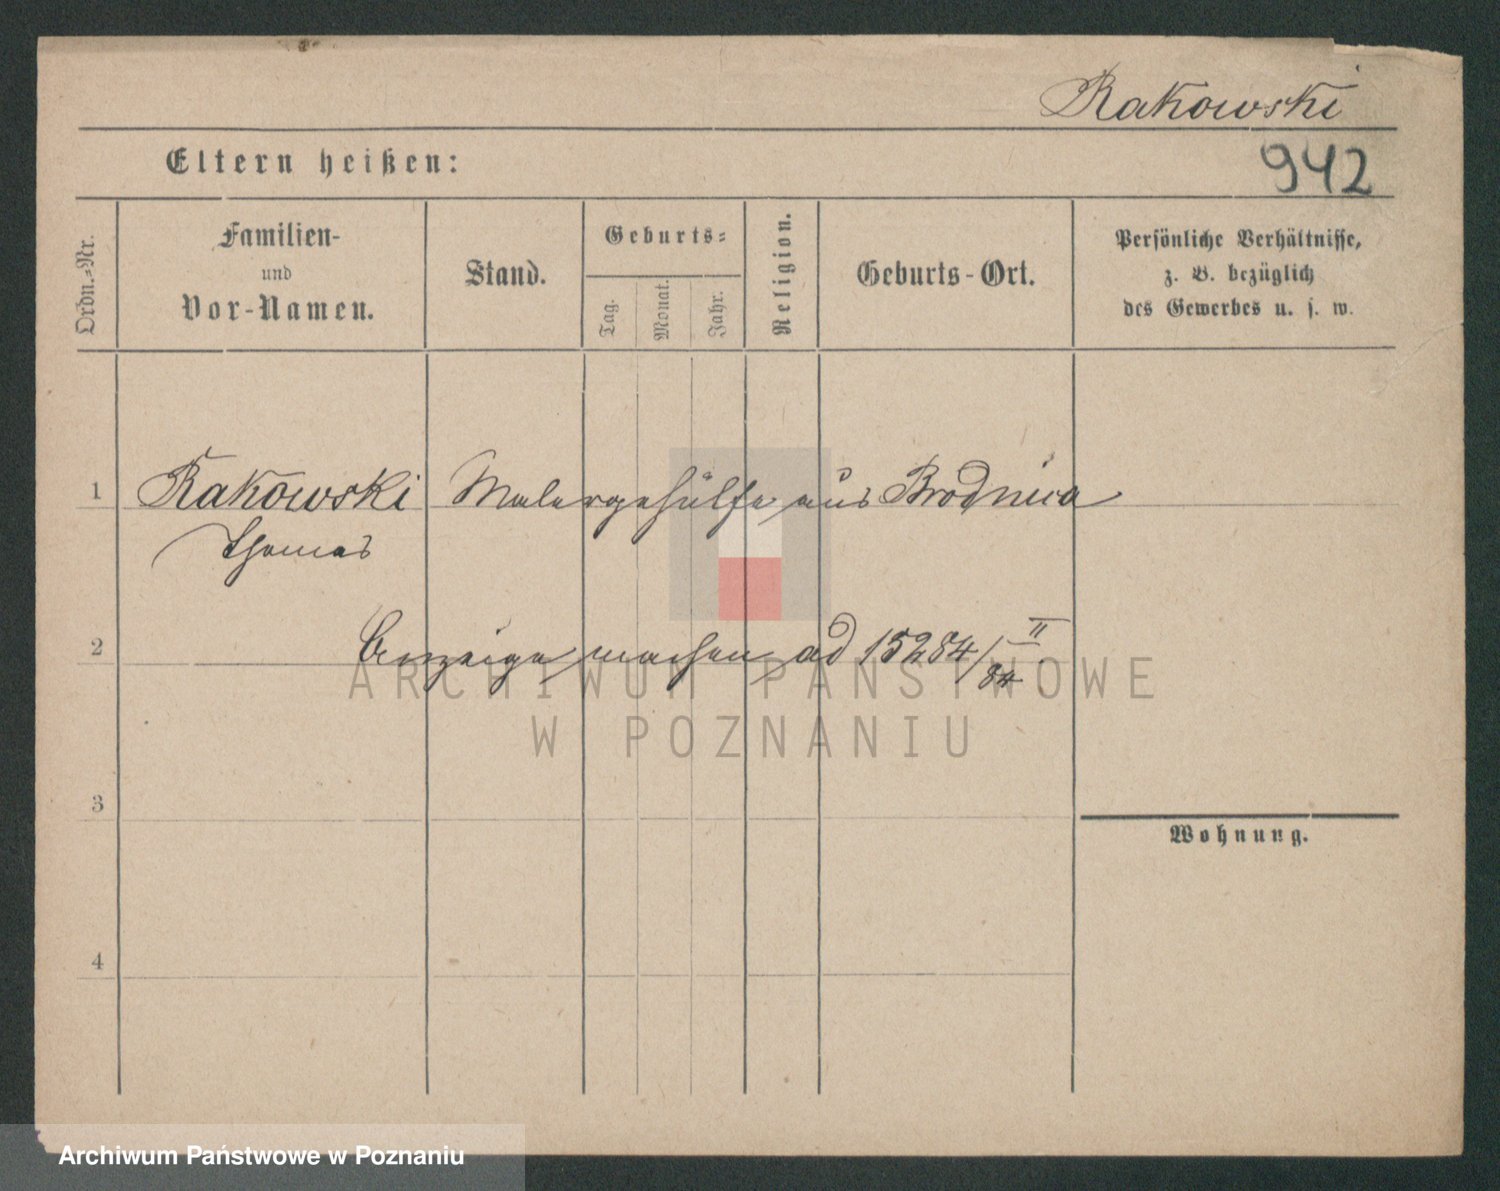 Rakowski
Eltern heißen:
942
Ordn.=Nr.
Familien-
und
Vor-Namen.
Stand.
Geburts=
Tag.
Monat.
Jahr.
Religion.
Geburts-Ort.
Persönliche Verhältnisse,
z. B. bezüglich
des Gewerbes u. s. w.
1 Rakowski Malergehülfe aus Brodnica
Thomas
2 Anzeige machen ad 15284/II 84
ARCHIWUM PAŃSTWOWE
W POZNANIU
3
Wohnung.
4
Archiwum Państwowe w Poznaniu